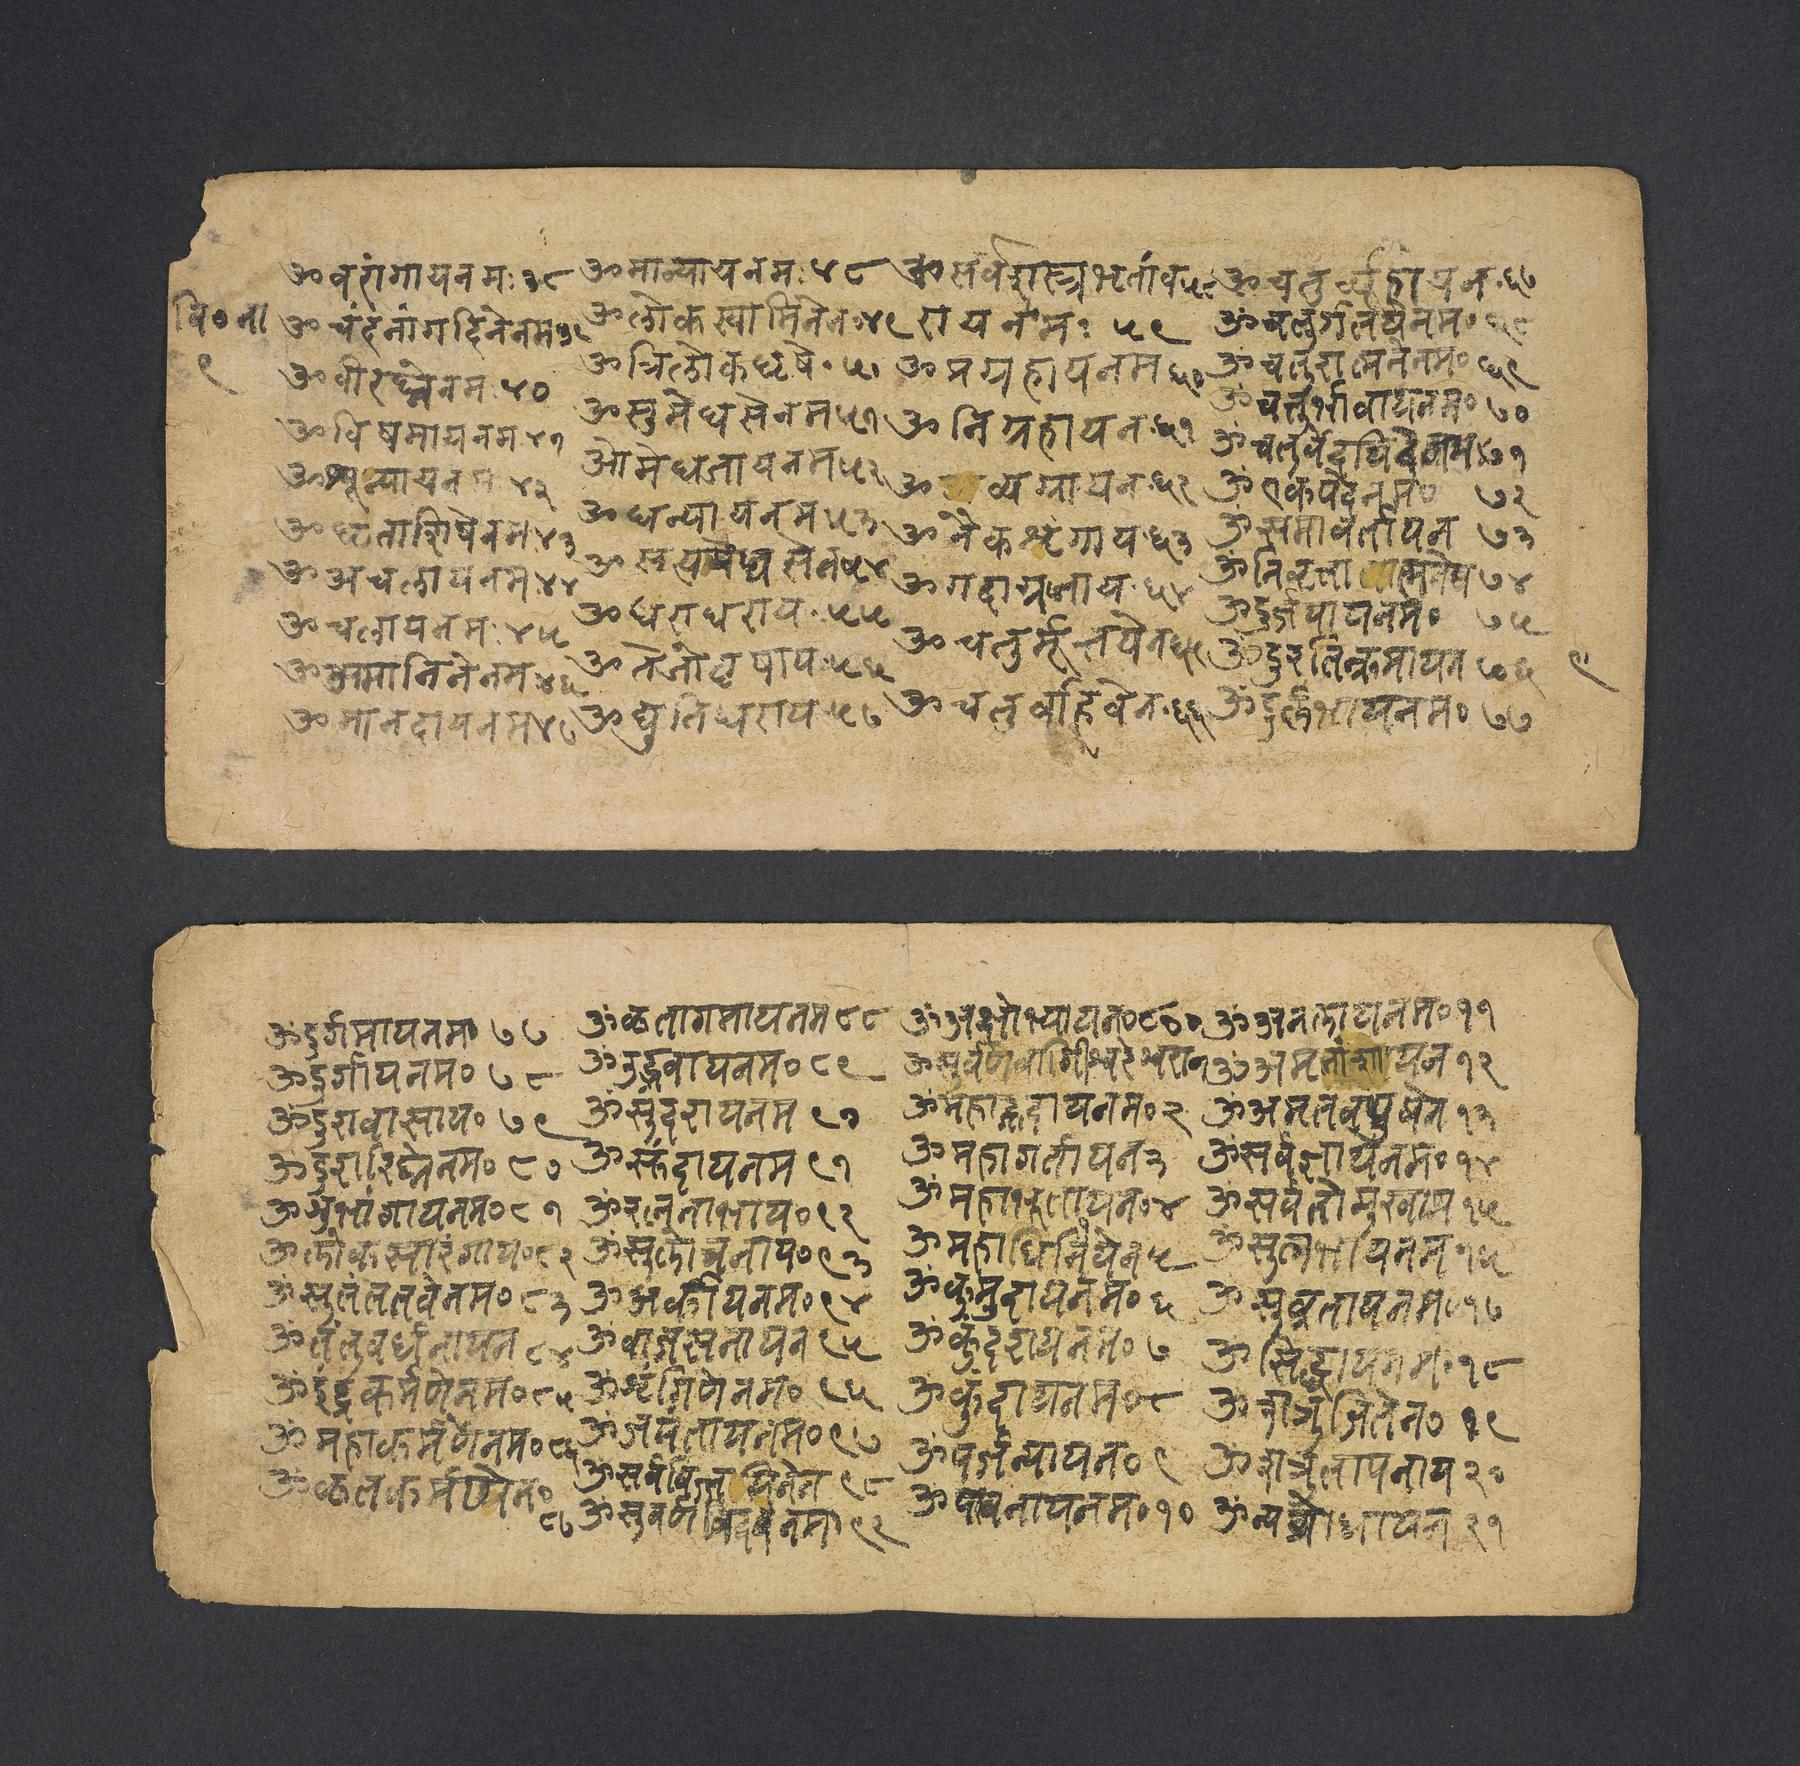 वि॰ना
९
ॐवरांगायनमः३८
ॐचंदनांगदिनेनम३९
ॐवीरघ्नेनमः४०
ॐविषमायनम४१
ॐशून्यायनम४२
ॐघृताशिषेनम४३
ॐअचलायनमः४४
ॐचलायनमः४५
ॐअमानिनेनम४६
ॐमानदायनम४७
ॐमान्यायनमः४८
ॐलोकस्वामिनेन४९
ॐत्रिलोकधृषे॰५०
ॐसुमेधसेनम५१
ओमेधजायनम५२
ॐधन्यायनम५३
ॐसत्यमेधसेन५४
ॐधराधराय॰५५
ॐतेजोवृषाय५६
ॐद्युतिधराय५७
ॐसर्वशस्त्रभृतांव५८
रायनमः५९
ॐप्रग्रहायनम६०
ॐनिग्रहायन६१
ॐव्यग्रायन६२
ॐनैकशृंगाय६३
ॐगदाग्रजाय६४
ॐचतुर्मूर्तयेन६५
ॐचतुर्वाहवेन६६
ॐचतुर्व्यूहायन॰६७
ॐचतुर्गतयेनम॰६८
ॐचतुरात्मनेनम॰६९
ॐचतुर्भावायनम॰७०
ॐचतुर्वेदविदेनम७१
ॐएकपदेनम॰ ७२
ॐसमावर्तायन ७३
ॐनिवृत्तात्मनेय७४
ॐदुर्जयायनम॰ ७५
ॐदुरतिक्रमायन७६
ॐदुर्लभायनम॰७७
९
ॐदुर्गमायनम॰७७
ॐदुर्गायनम॰७८
ॐदुरावासाय॰७९
ॐदुरारिघ्नेनम॰८०
ॐशुभांगायनम॰८१
ॐलोकसारंगाय॰८२
ॐसुतंततवेनम॰८३
ॐतंतुवर्धनायन८४
ॐइंद्रकर्मणेनम॰८५
ॐमहाकर्मणेनम॰८६
ॐकृतकर्मण्येन॰८७
ॐकृतागमायनम८८
ॐउद्भवायनम॰८९
ॐसुंदरायनम९०
ॐस्कंदायनम९१
ॐरत्ननाभाय॰९२
ॐसुलोचनाय॰९३
ॐअर्कायनम॰९४
ॐवाजसनायन९५
ॐशृंगिणेनम॰९६
ॐजयंतायनम॰९७
ॐसर्वविज्जयिनेन९८
ॐसुवर्णविंदवेनम९९
ॐअक्षोभ्यायन॰८००
ॐसर्ववागीश्वरेश्वरान
ॐमहाह्रदायनम॰२
ॐमहागर्तायन३
ॐमहाभूतायन॰४
ॐमहाधिनिधेन५
ॐकुमुदायनम॰६
ॐकुंदरायनम॰७
ॐकुंदायनम॰८
ॐपर्जन्यायन॰९
ॐपावनायनम॰१०
ॐअनलायनम॰११
ॐअमृतांशायन१२
ॐअमृतवपुषेन१३
ॐसर्वज्ञायनम॰१४
ॐसर्वतोमुखाय१५
ॐसुलभायनम१६
ॐसुव्रतायनम॰१७
ॐसिद्धायनम॰१८
ॐशत्रुजितेन॰१९
ॐशत्रुतापनाय२०
ॐन्यग्रोधायन२१